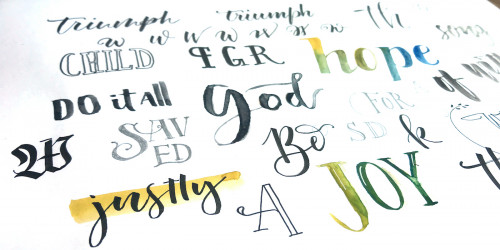 triumph triumph The
w w w w w w w
CHILD PGR hope
DO it all god
W SAVED Be FOR &
justly A JOY